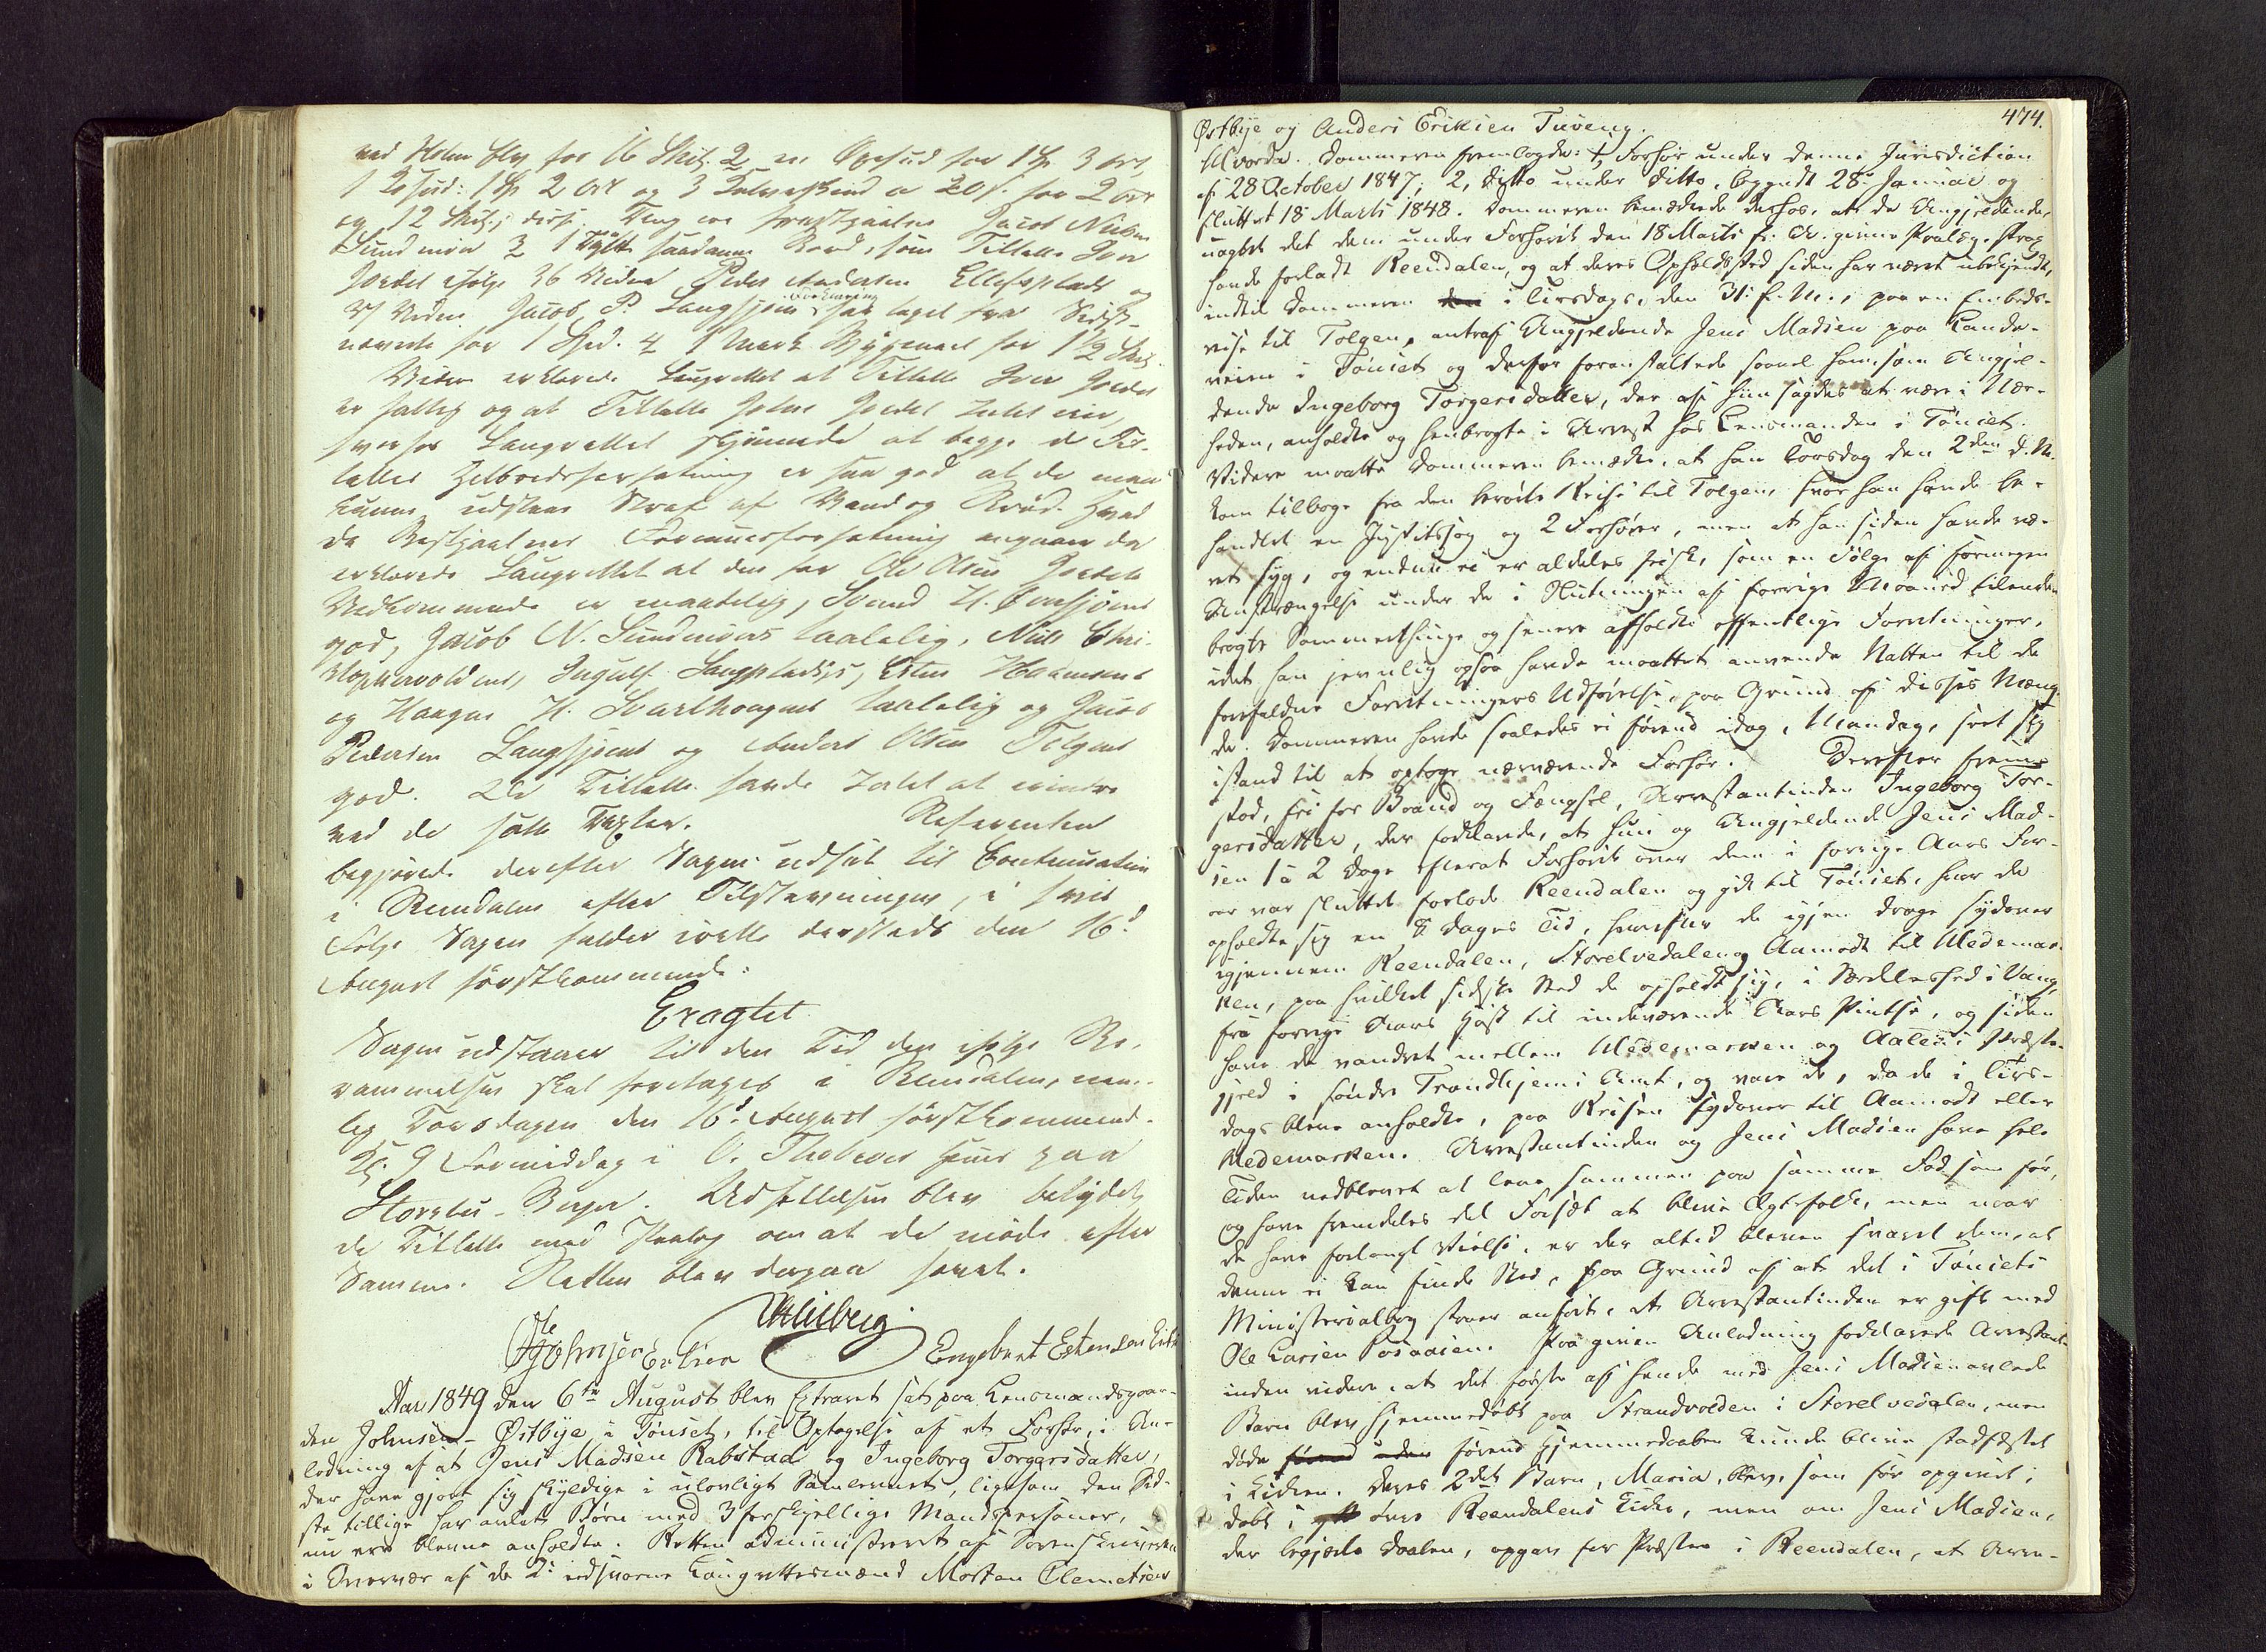 ved Holm blev for 16 Skil. 2 er Oxehud for 1 Sp 3 Ort,
1 Kohud: 1 Sp 2 Ort og 3 Kalveskind a 20 s. for 2 Ort
og 12 Skil; diss. Ting ere frastjaalne Jacob Nielsen
Sundmoen 3 1 Tylvt saadanne Bord, som Tiltalte Iver
Joedel ifølge 36 Vidne Peder Andersen Ellefsplads og
37 Vidne Jacob P. Langsjøens Forklaring har taget fra Sidst-
nævnte for 1 Spd. 4 1 Mark Bygmeel for 1 1/2 Skil.
Videre erklærede Laugrettet at Tiltalte Iver Joedel
er fattig og at Tiltalte John Joedel Intet eier,
hvorhos Laugrettet skjønnede at begge de Til-
taltes Helbredsforfatning er saa god at de maa
kunne udstaae Straf af Vand og Brød. Hvad
de Bestjaalnes Formuesforfatning angaaer da
erklærede Laugrettet at den for Ole Olsen Joedels
Vedkommende er maadelig, Svend H. Tonsjøens
god, Jacob N. Sundmoens taalelig, Niels Chri.
Kopparvoldens, Ingulf Langpladsis, Esten Haamoens
og Haagen H. Svarthaagens taalelig og Jacob
Pedersen Langsjøens og Anders Olsen Telgens
god. De Tiltalte havde Intet at erindre
ved de faldte Vexler. Referenten
begjærede derefter Sagen udsat til Continuation
i Rendalen efter Tilstævningen, i hvis
Følge Sagen falder irette dersteds den 16d
August førstkommende.
Eragtet
Sagen udstaaer til den Tid den ifølge Be-
rammelsen skal foretages i Rendalen, nem-
lig Torsdagen den 16d August førstkommend.
Kl. 9 Formiddag i O. Thoresens Huus paa
Storstu-Bergs. Udsættelsen blev betydet
de Tiltalte med Paalæg om at de møde efter
Samme. Retten blev derpaa hævet.
Ole
Johnsen Eriksen Engebret Estensen
Aar 1849 den 6te August blev Extraret sat paa Lensmandsgaar-
den Johnsen-Østbye i Tønset, til Optagelse af et Forhør, i An-
ledning af at Jens Madsen Rabstad og Ingeborg Torgersdatter,
der have gjort sig skyldige i ulovligt Samlevnet, ligesom den Sid-
ste tillige har avlet Børn med 3 forskjellige Mandspersoner,
nu ere blevne anholdte. Retten administreret af Sorenskriveren
i Overvær af de 2de edsvorne Laugrettesmænd Morten Clemetsen
474.
Østbye og Anders Eriksen Tuveng.
Hvorda. Dommeren fremlagde: 1, Forhør under denne Jurisdiction
af 28 October 1847; 2, ditto under ditto, begyndt 28de Januar og
sluttet 18 Marts 1848. Dommeren bemærkede derhos, at de Angjeldende,
uagtet det dem under Forhøret den 18 Marts f. A. givne Paalæg, strax
havde forladt Reendalen, og at deres Opholdssted siden har været ubekjendt,
indtil Dommeren i Tirsdags, den 31te f. M., paa en Embeds-
reise til Tolgen, antraf Angjeldende Jens Madsen paa Lande-
veien i Tønset og derfor foranstaltede saavel ham som Angjel-
dende Ingeborg Torgersdatter, der og hun sagdes at være i Nær-
heden, anholdte og henbragte i Arrest hos Lensmanden i Tønset.
Videre maatte Dommeren bemærke, at han Torsdag den 2den d. M.
kom tilbage fra den berørte Reise til Tolgen, hvor han havde be-
handlet en Justitssag og 2 Forhører, men at han siden havde væ-
ret syg, og endnu ei er aldeles frisk, som en Følge af formegen
Anstrængelse under de i Slutningen af forrige Maaned tilende-
bragte Sommerthinge og senere afholdte offentlige Forretninger,
idet han jevnlig ogsaa havde maattet anvende Natten til de
forefaldne Forretningers Udførelse, paa Grund af disses Mæng-
de. Dommeren havde saaledes ei førend idag, Mandag, seet sig
istand til at optage nærværende Forhør. Derefter frem-
stod, fri for Baand og Fængsel, Arrestantinden Ingeborg Tor-
gersdatter, der forklarede, at hun og Angjeldende Jens Mad-
sen 1 à 2 Dage efterat Forhøret over dem i forrige Aars For-
aar var sluttet forlode Reendalen og gik til Tønset, hvor de
opholdte sig en 8 Dages Tid, hvorefter de igjen droge sydover
igjennem Reendalen, Storelvedalen og Aamodt til Hedemar-
ken, paa hvilket sidste Sted de opholdt sig, i Særdeleshed i Vang,
fra forrige Aars Høst til indeværende Aars Pintse, og siden
have de vandret mellem Hedemarken og Aalens Præste-
gjeld i søndre Trondhjems Amt, og vare de, da de i Tirs-
dags bleve anholdte, paa Reisen sydover til Aamodt eller
Hedemarken. Arrestantinden og Jens Madsen have hele
Tiden vedblevet at leve sammen paa samme Fod som før,
og have fremdeles det Forsæt at blive Ægtefolk, men naar
de have forlangt Vielse, er der altid bleven svaret dem, at
denne ei kan finde Sted, paa Grund af at det i Tønsets
Ministerialbog staaer anført, at Arrestantinden er gift med
Ole Larsen Posaasen. Paa given Anledning forklarede Arrestant-
inden videre, at det første af hende med Jens Madsen avlede
Barn blev hjemmedøbt paa Strandvolden i Storelvedalen, men
døde førend uden førend Hjemmedaaben kunde blive stadfæstet
i Kirken. Deres 2det Barn, Maria, blev, som før opgivet,
døbt i øvre Reendalens Kirke, men om Jens Madsen,
der begjærte Daaben, opgav for Præsten i Reendalen, at Arre-